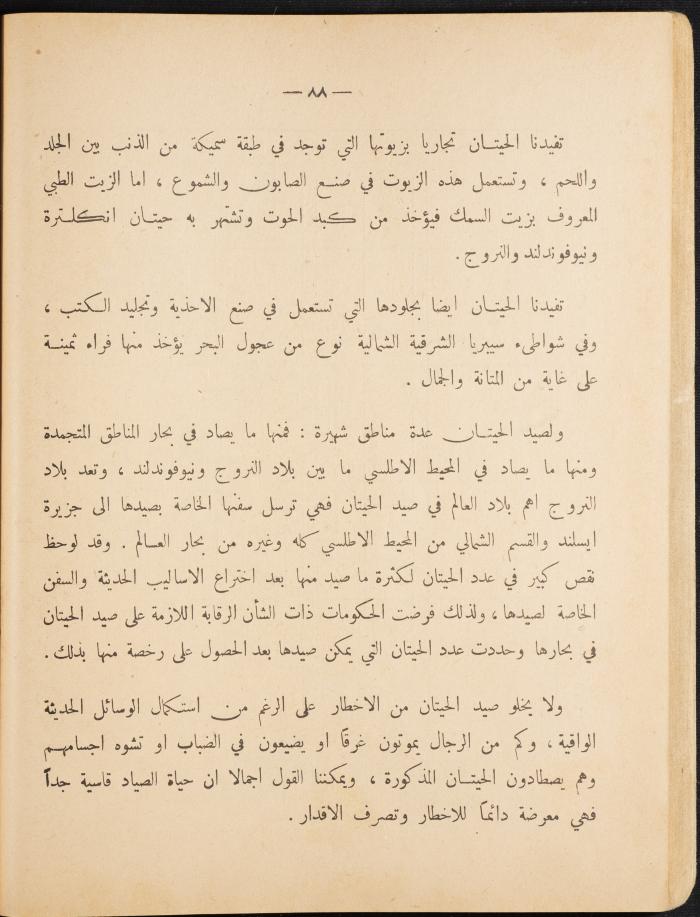 — ٨٨ —
تفيدنا الحيتان تجاريا بزيوتها التي توجد في طبقة سميكة من الذنب بين الجلد
واللحم ، وتستعمل هذه الزيوت في صنع الصابون والشموع ، اما الزيت الطبي
المعروف بزيت السمك فيؤخذ من كبد الحوت وتشتهر به حيتان انكلترة
ونيوفوندلند والنروج .
تفيدنا الحيتان ايضا بجلودها التي تستعمل في صنع الاحذية وتجليد الكتب ،
وفي شواطىء سيبريا الشرقية الشمالية نوع من عجول البحر يؤخذ منها فراء ثمينة
على غاية من المتانة والجمال .
ولصيد الحيتان عدة مناطق شهيرة : فمنها ما يصاد في بحار المناطق المتجمدة
ومنها ما يصاد في المحيط الاطلسي ما بين بلاد النروج ونيوفوندلند ، وتعد بلاد
النروج اهم بلاد العالم في صيد الحيتان فهي ترسل سفنها الخاصة بصيدها الى جزيرة
ايسلند والقسم الشمالي من المحيط الاطلسي كله وغيره من بحار العالم . وقد لوحظ
نقص كبير في عدد الحيتان لكثرة ما صيد منها بعد اختراع الاساليب الحديثة والسفن
الخاصة لصيدها ، ولذلك فرضت الحكومات ذات الشأن الرقابة اللازمة على صيد الحيتان
في بحارها وحددت عدد الحيتان التي يمكن صيدها بعد الحصول على رخصة منها بذلك .
ولا يخلو صيد الحيتان من الاخطار على الرغم من استكمال الوسائل الحديثة
الواقية ، وكم من الرجال يموتون غرقاً او يضيعون في الضباب او تشوه اجسامهم
وهم يصطادون الحيتان المذكورة ، ويمكننا القول اجمالا ان حياة الصياد قاسية جداً
فهي معرضة دائماً للاخطار وتصرف الاقدار .